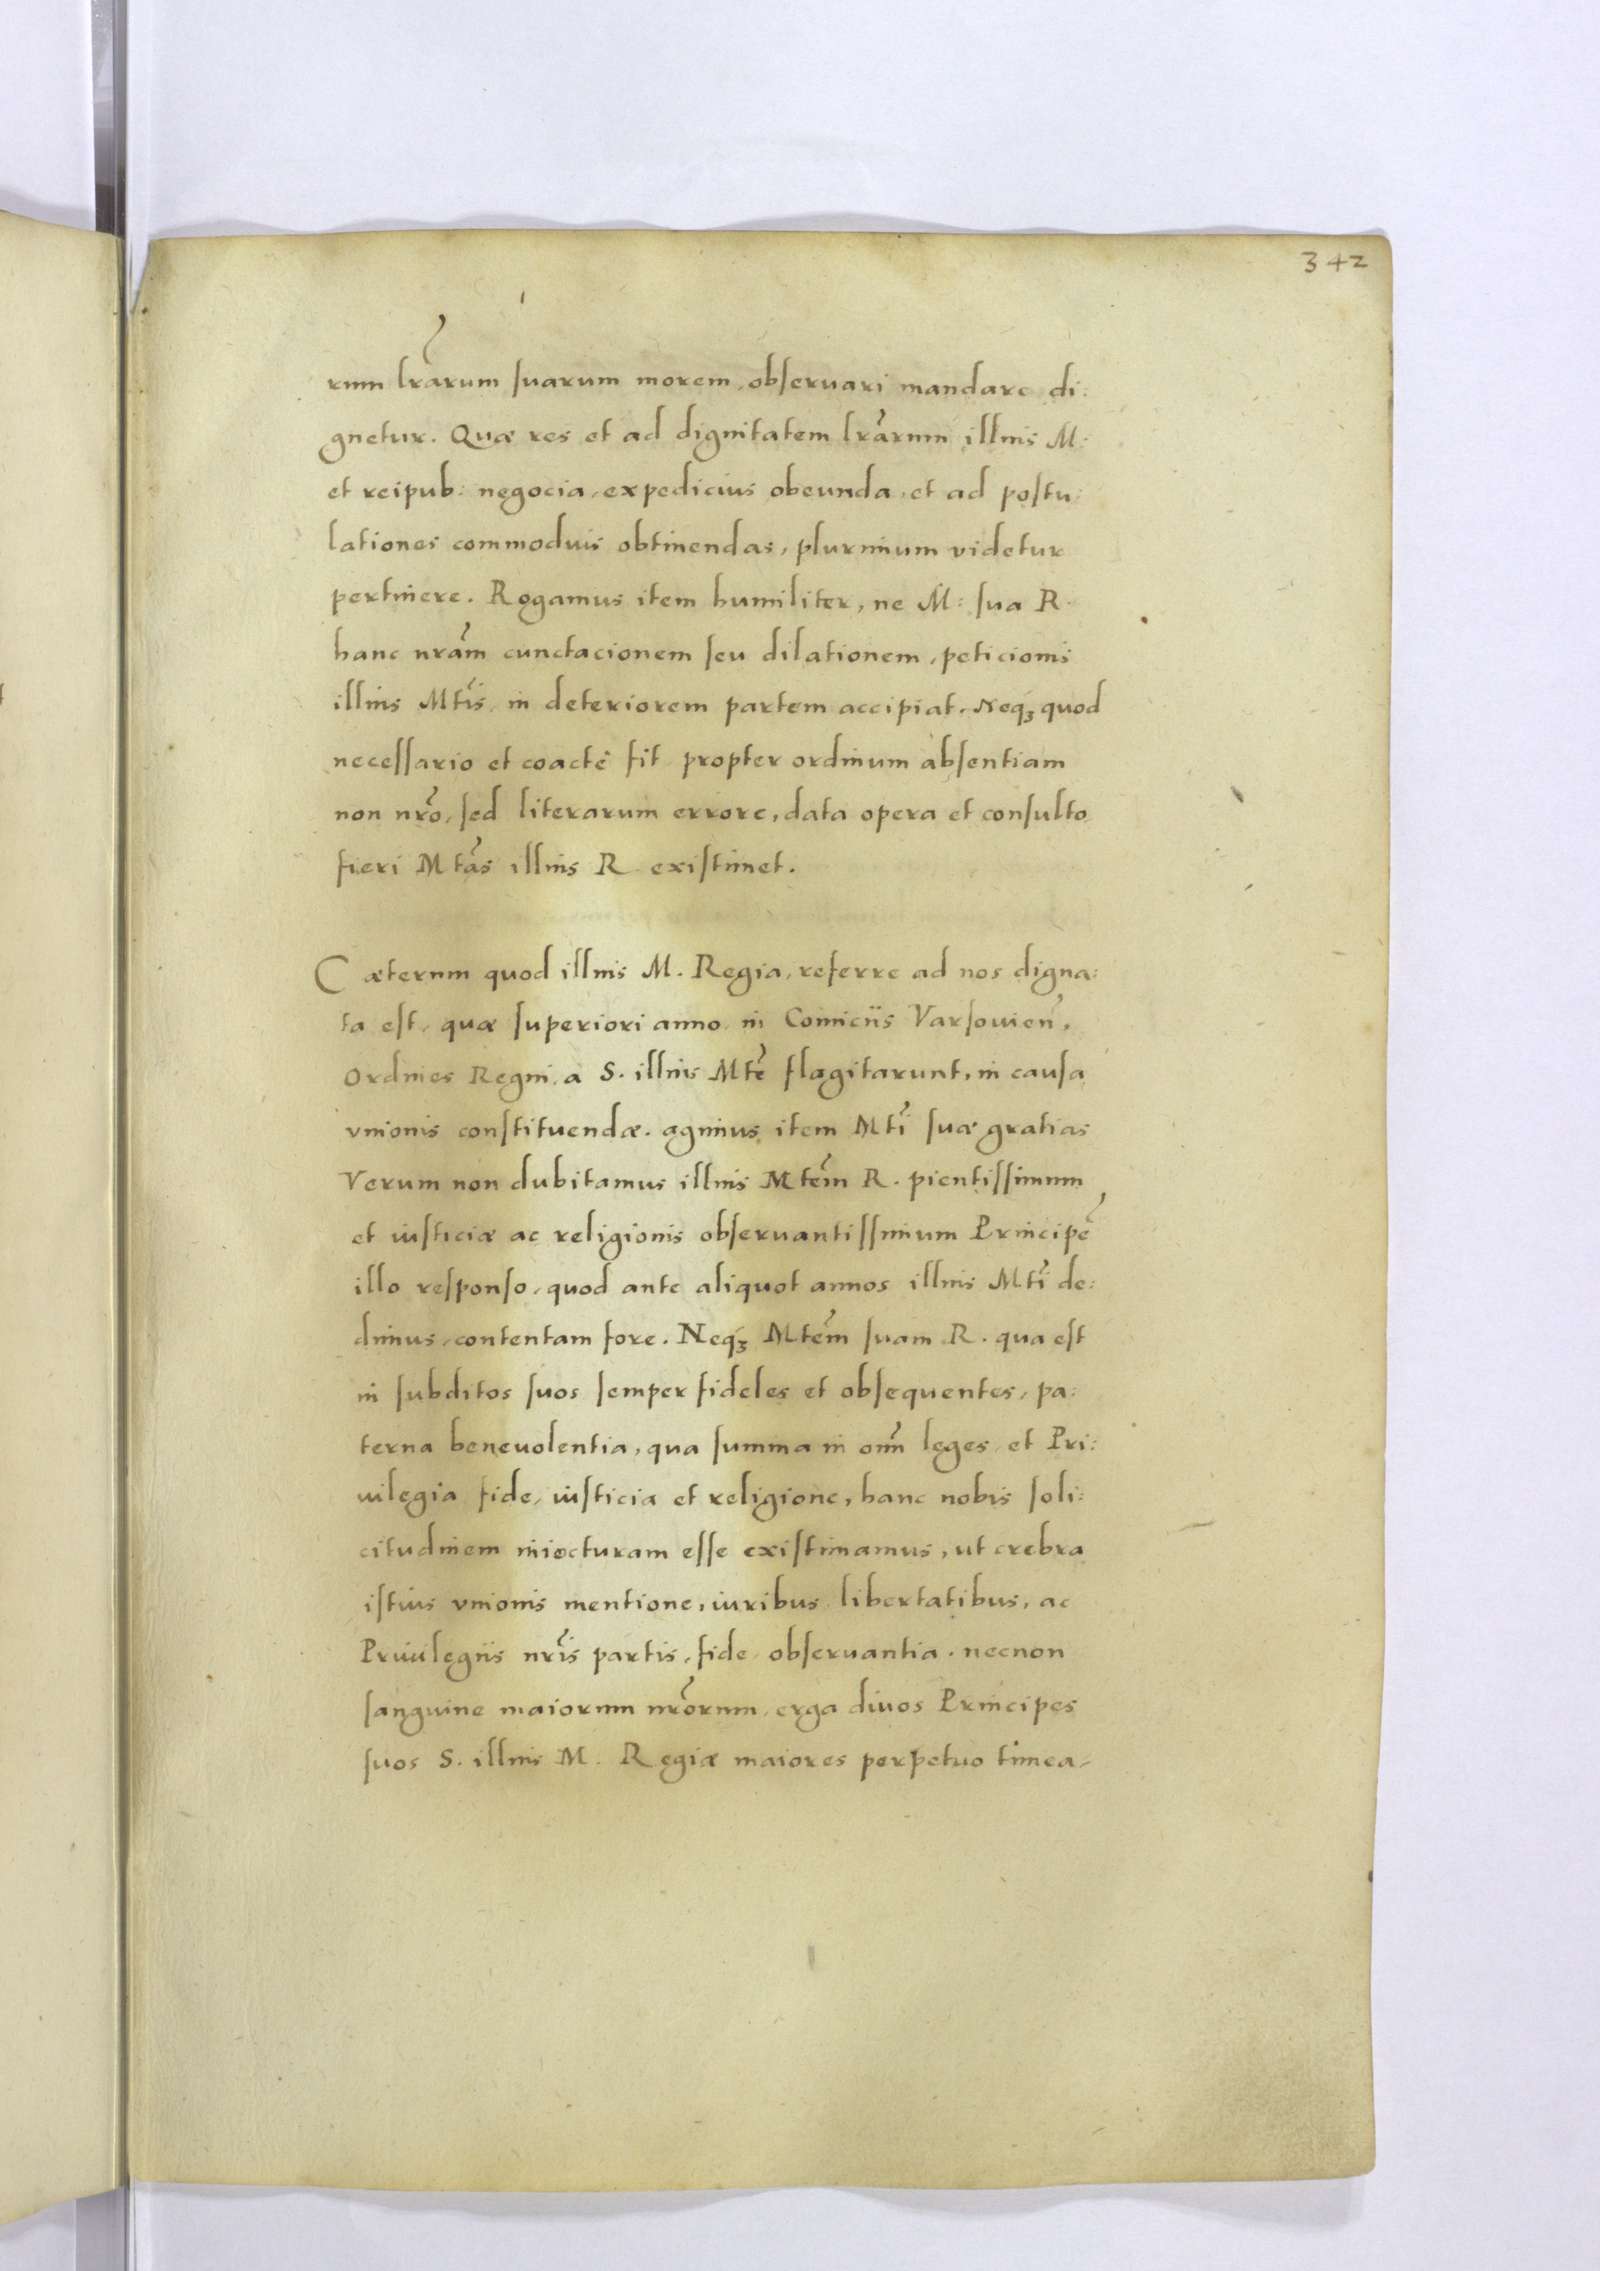 342
rum lr̃arum suarum morem, obseruari mandare di:
gnetur. Quæ res et ad dignitatem lr̃arum illius M:
et reipub: negocia, expedicius obeunda, et ad postu:
lationes commodius obtinendas, plurimum videtur
pertinere. Rogamus item humiliter, ne M: sua R.
hanc nr̃am cunctacionem seu dilationem, peticionis
illius Mtis̃, in deteriorem partem accipiat. Neq́ꝫ quod
necessario et coacte fit propter ordinum absentiam
non nr̃o, sed literarum errore, data opera et consulto
fieri Mtãs illius R. existimet.
Cæterum quod illius M. Regia, referre ad nos digna:
ta est, quæ superiori anno, in Comiciis Varsouien̄,
Ordines Regni, a S. illius Mtẽ flagitarunt, in causa
vnionis constituendæ. agimus item Mtĩ suæ gratias
Verum non dubitamus illius Mtẽm R. pientissimum
et iusticiæ ac religionis obseruantissimum Principẽ
illo responso, quod ante aliquot annos illius Mtĩ de:
dimus, contentam fore. Neq́ꝫ Mtẽm suam R. qua est
in subditos suos semper fideles et obsequentes, pa:
terna beneuolentia, qua summa in om̃ leges, et Pri:
uilegia fide, iusticia et religione, hanc nobis soli:
citudinem iniecturam esse existimamus, ut crebra
istius vnionis mentione, iuribus libertatibus, ac
Priuilegiis nr̃is partis, fide obseruantia, necnon
sanguine maiorum nr̃orum, erga diuos Principes
suos S. illius M. Regiæ maiores perpetuo timea,